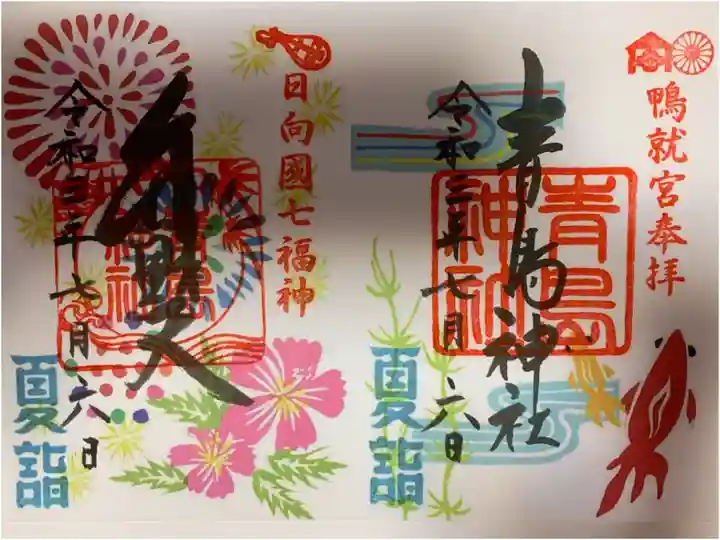 鴨就宮奉拝
青島神社
青島
神社
令和三年七月六日
夏詣
日向國七福神
令和三年七月六日
夏詣